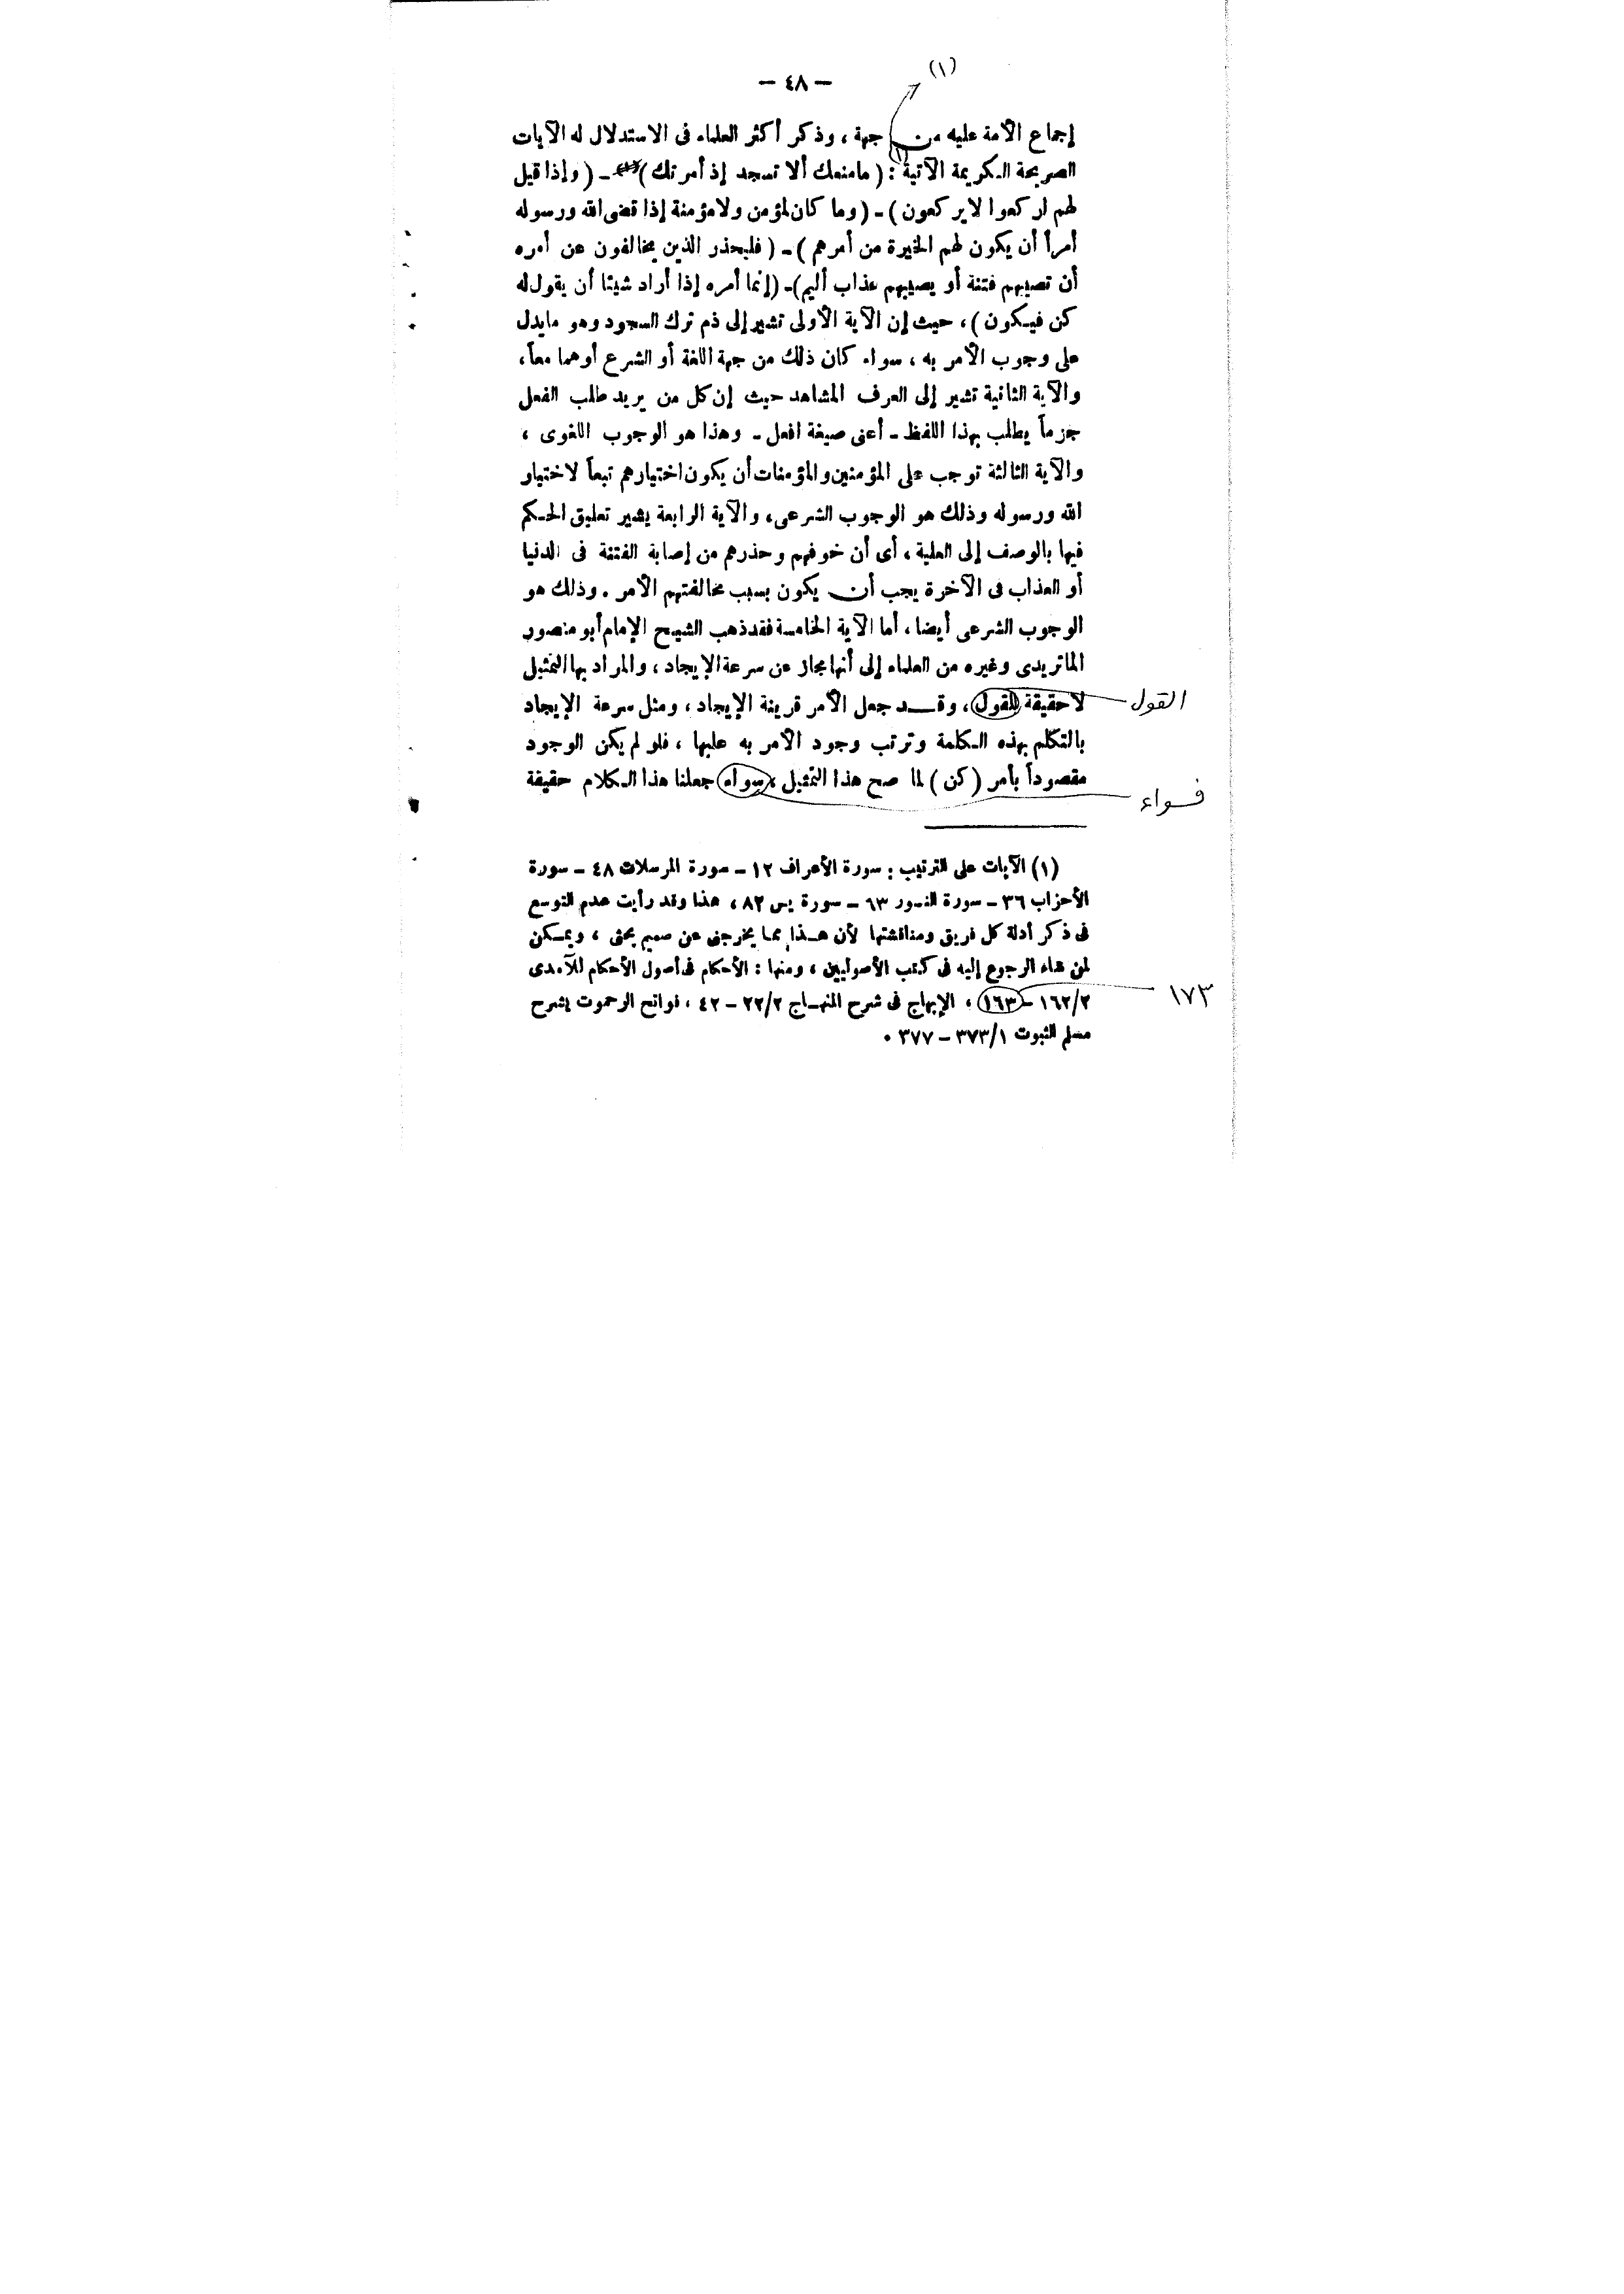 (١)
— ٤٨ —
إجماع الأمة عليه من جهة ، وذكر أكثر العلماء فى الاستدلال له الآيات
الصريحة الكريمة الآتية (١) : ( مامنعك ألا تسجد إذ أمرتك ) - ( وإذا قيل
لهم اركعوا لا يركعون ) - ( وما كان لمؤمن ولا مؤمنة إذا قضى الله ورسوله
أمراً أن يكون لهم الخيرة من أمرهم ) - ( فليحذر الذين يخالفون عن أمره
أن تصيبهم فتنة أو يصيبهم عذاب أليم ) - ( إنما أمره إذا أراد شيئا أن يقول له
كن فيكون ) ، حيث إن الآية الأولى تشير إلى ذم ترك السجود وهو مايدل
على وجوب الأمر به ، سواء كان ذلك من جهة اللغة أو الشرع أو هما معاً ،
والآية الثانية تشير إلى العرف المشاهد حيث إن كل من يريد طلب الفعل
جزماً يطلب بهذا اللفظ - أعنى صيغة افعل - وهذا هو الوجوب اللغوى ،
والآية الثالثة توجب على المؤمنين والمؤمنات أن يكون اختيارهم تبعاً لاختيار
الله ورسوله وذلك هو الوجوب الشرعى ، والآية الرابعة يشير تعليق الحكم
فيها بالوصف إلى العلية ، أى أن خوفهم وحذرهم من إصابة الفتنة فى الدنيا
أو العذاب فى الآخرة يجب أن يكون بسبب مخالفتهم الأمر . وذلك هو
الوجوب الشرعى أيضا ، أما الآية الخامسة فقد ذهب الشيخ الإمام أبو منصور
الماتريدى وغيره من العلماء إلى أنها مجاز عن سرعة الإيجاد ، والمراد بها التمثيل
لا حقيقة للقول ، وقد جعل الأمر قرينة الإيجاد ، ومثل سرعة الإيجاد
القول
بالتكلم بهذه الكلمة وترتب وجود الأمر به عليها ، فلو لم يكن الوجود
مقصوداً بأمر ( كن ) لما صح هذا التمثيل ، سواء جعلنا هذا الكلام حقيقة
فسواء
(١) الآيات على الترتيب : سورة الأعراف ١٢ - سورة المرسلات ٤٨ - سورة
الأحزاب ٣٦ - سورة النور ٦٣ - سورة يس ٨٢ ، هذا وقد رأيت عدم التوسع
فى ذكر أدلة كل فريق ومناقشتها لأن هذا مما يخرجنى عن صميم بحثى ، ويمكن
لمن شاء الرجوع إليه فى كتب الأصوليين ، ومنها : الأحكام فى أصول الأحكام للآمدى
٢/١٦٢ - ١٦٣ ، الإبهاج فى شرح المنهاج ٢/٢٢ - ٤٢ ، فواتح الرحموت بشرح
١٧٣
مسلم الثبوت ١/٣٧٣ - ٣٧٧ .